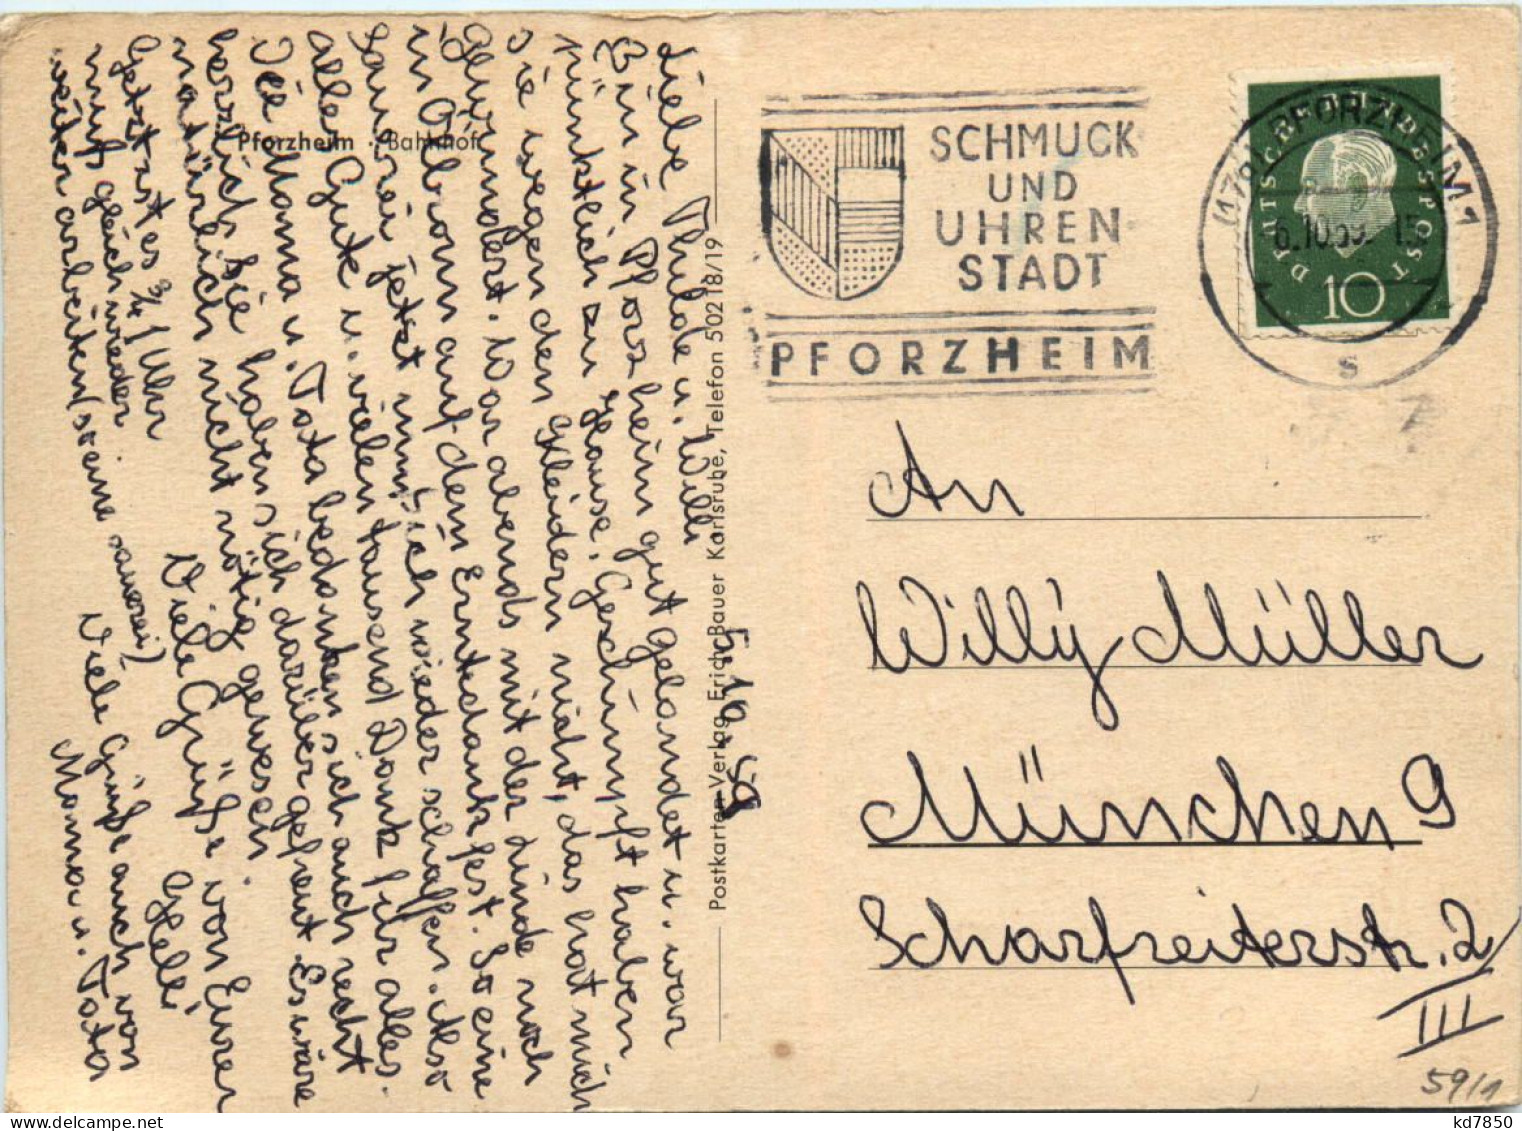 Pforzheim · Bahnhof
Liebe Thilde u. Willi
Bin in Pforzheim gut gelandet u. war
pünktlich zu Hause. Geschimpft haben
sie wegen den Kleidern nicht, das hat mich
gewundert. War abends mit der Linde noch
in Ölbronn auf dem Erntedankfest. So eine
Sauerei jetzt muß ich wieder schaffen. Also
alles Gute u. vielen tausend Dank für alles.
Die Mama u. Tata bedanken sich auch recht
herzlich Sie haben sich darüber gefreut. Es wäre
natürlich nicht nötig gewesen.
Jetzt ist es 3/4 1 Uhr
muß gleich wieder
weiter arbeiten (so eine sauerei)
Viele Grüße von Eurer
Heli
Viele Grüße auch von
Mama u. Tata
5.10.59
Postkarten-Verlag Erich Bauer Karlsruhe, Telefon 50218/19
SCHMUCK
UND
UHREN
STADT
PFORZHEIM
PFORZHEIM 1
6.10.59. 15
s
DEUTSCHE BUNDESPOST
10
An
Willy Müller
München 9
Scharfreiterstr. 2/
III
59/1
kd7850